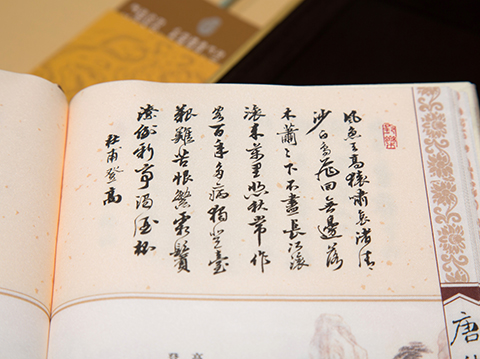 風急天高猿嘯哀渚清
沙白鳥飛回無邊落
木蕭〻下不盡長江滚
滚来萬里悲秋常作
客百年多病獨登臺
艱難苦恨繁霜鬢
潦倒新亭濁酒杯
杜甫登高
唐